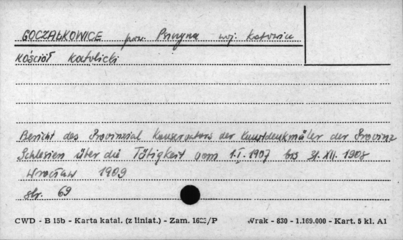 GOCZAŁKOWICE pow. Pszczyna woj. Katowice
Kościół Katolicki
Bericht des Provinzial Konservators der Kunstdenkmäler der Provinz
Schlesien über die Tätigkeit vom 1.I.1907 bis 31.XII.1908
Wrocław 1909
str. 69
CWD - B 15b - Karta katal. (z liniat.) - Zam. /P Wrak - 830 - 1.169.000 - Kart. 5 kl. A1